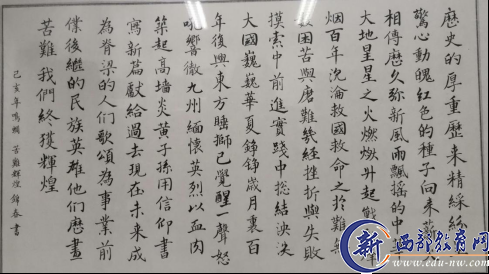 歷史的厚重歷來精綵
驚心動魄紅色的種子向來
相傳歷久弥新風雨飄摇的中
大地星星之火燃燃升起戰
烟百年沉淪救國救命之於難
困苦與磨難幾經挫折與失敗
摸索中前進實踐中總結泱泱
大國巍巍華夏錚錚歲月裏百
年復興東方睡獅已覺醒一聲怒
吼響徹九州緬懷英烈以血肉
築起高墙炎黃子孫用信仰書
寫新篇獻給過去現在未來成
為脊梁的人们歌頌為事業前
僕後繼的民族英雄他们歷盡
苦難我們終獲輝煌
己亥年鳴 苦難輝煌 錦春書
新 西部教育网
www.edu-nw.com